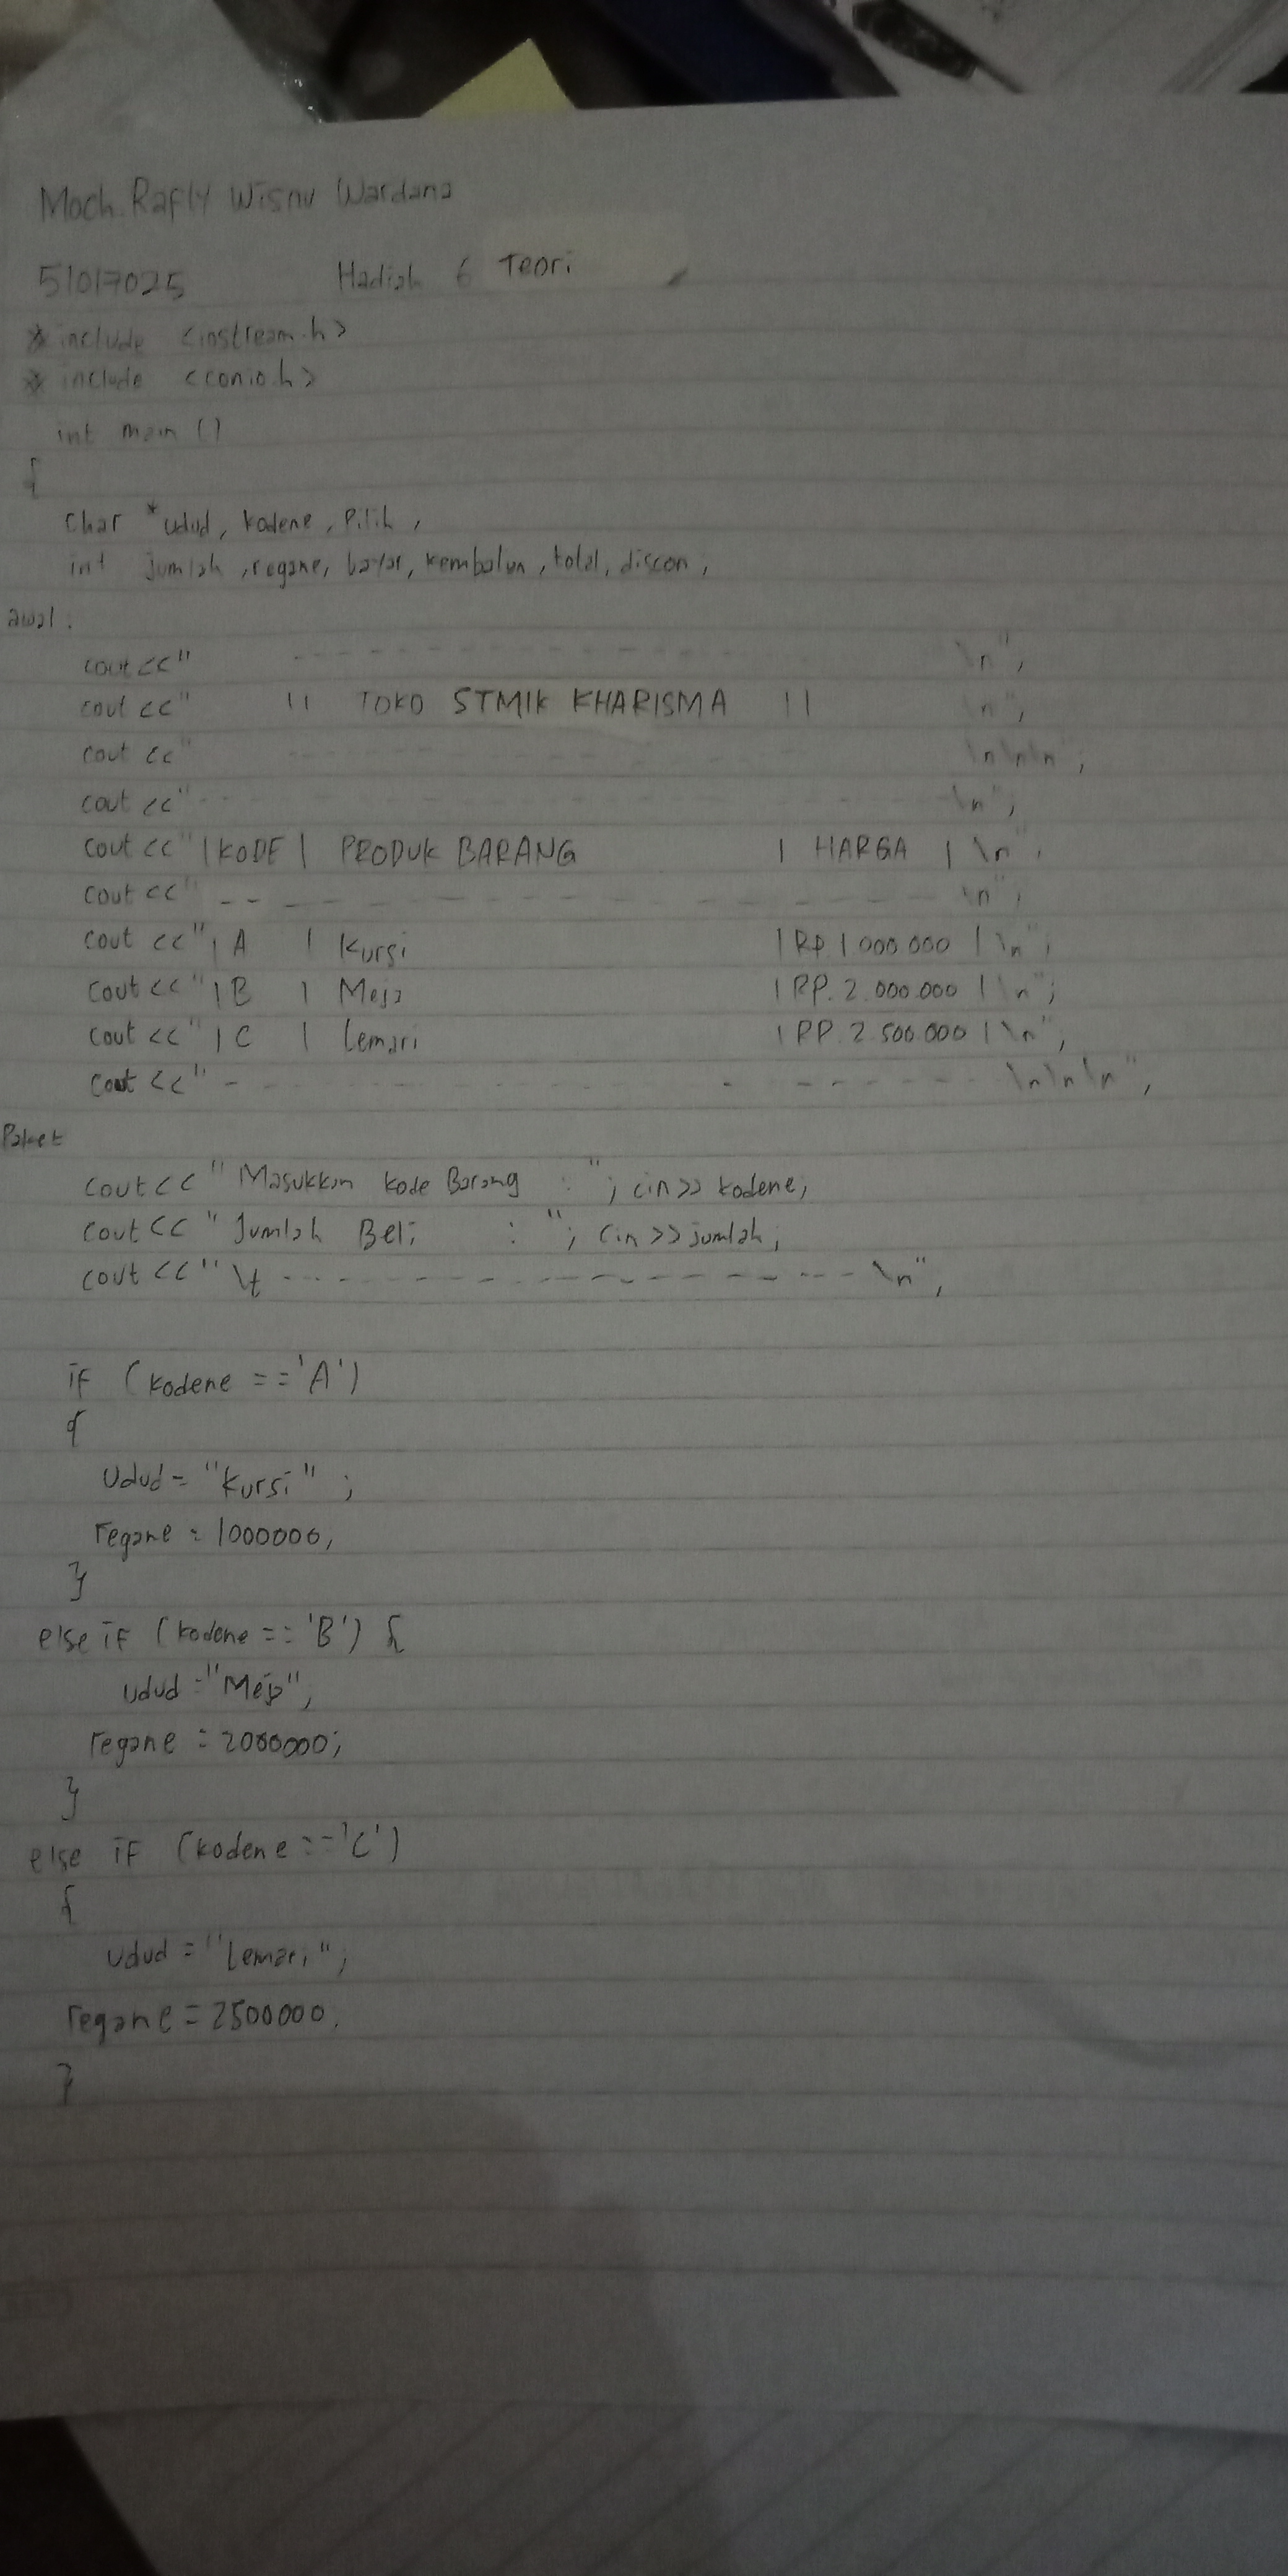 Moch. Rafly Wisnu Wardana
51017025 Hadiah 6 Teori
include <iostream.h>
include <conio.h>
int main ()
{
char *udud, kodene, Pilih,
int jumlah, regane, bayar, kembalian, total, discon,
awal:
cout <<" - - - - - - - - - - - - - - \n",
cout <<" || TOKO STMIK KHARISMA || \n",
cout <<" - - - - - - - - - - - - \n\n\n";
cout <<" - - - - - - - - - - - - \n";
cout <<" | KODE | PRODUK BARANG | HARGA | \n";
cout <<" - - - - - - - - - - - - - - - - \n";
cout <<" | A | Kursi | Rp 1.000.000 | \n";
cout <<" | B | Meja | RP. 2.000.000 | \n";
cout <<" | C | Lemari | RP. 2.500.000 | \n",
cout <<" - - - - - - - - - - - - - \n\n\n",
Paket
cout << " Masukkan kode Barang : "; cin >> kodene;
cout << " Jumlah Beli : "; cin >> jumlah;
cout <<" \t - - - - - - - - - - - - - - - - \n",
if (kodene == 'A')
{
Udud = "Kursi" ;
regane = 1000000,
}
else if (kodene == 'B') {
udud = "Meja",
regane = 2000000;
}
else if (kodene == 'C')
{
udud = "Lemari";
regane = 2500000,
}